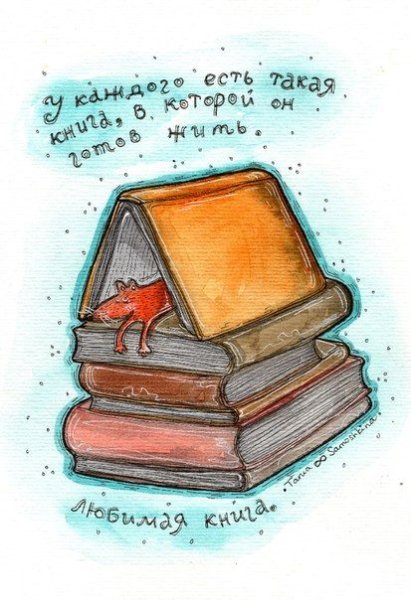 У каждого есть такая
книга, в которой он
готов жить.
Tania ∞ Samoshkina
любимая книга.